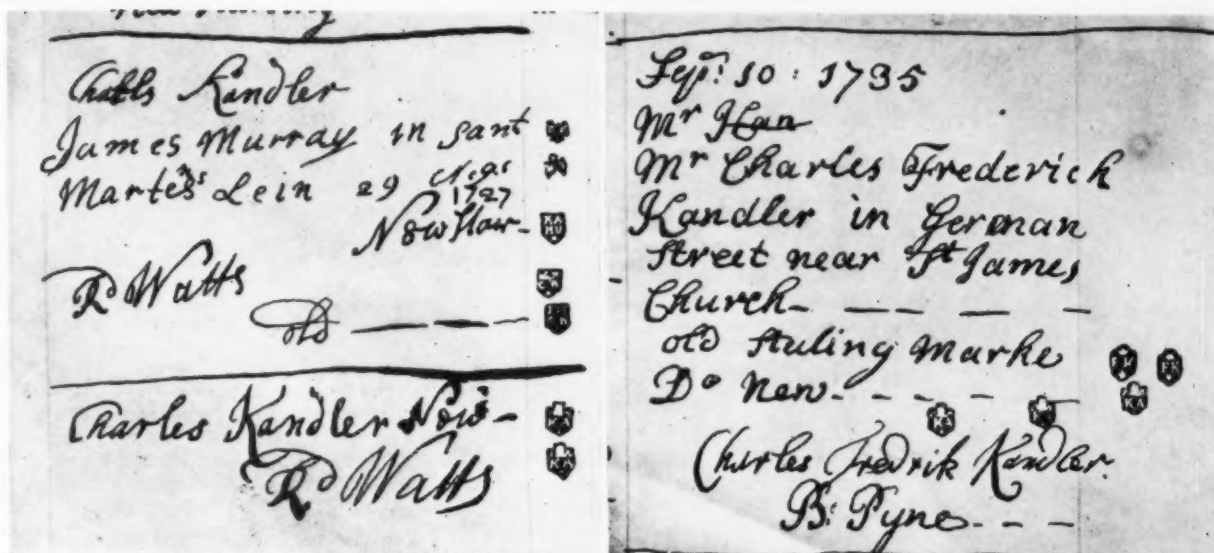 Charles Kandler
James Murray in sant
Martens Lein 29
1727
Now
Rd Watts
old
Charles Kandler Now
Rd Watts
Sepr: 10: 1735
Mr Han
Mr Charles Frederick
Kandler in German
street near St James
Church
old stuling Marke
Do New
Charles Fredrik Kandler
B: Pyne